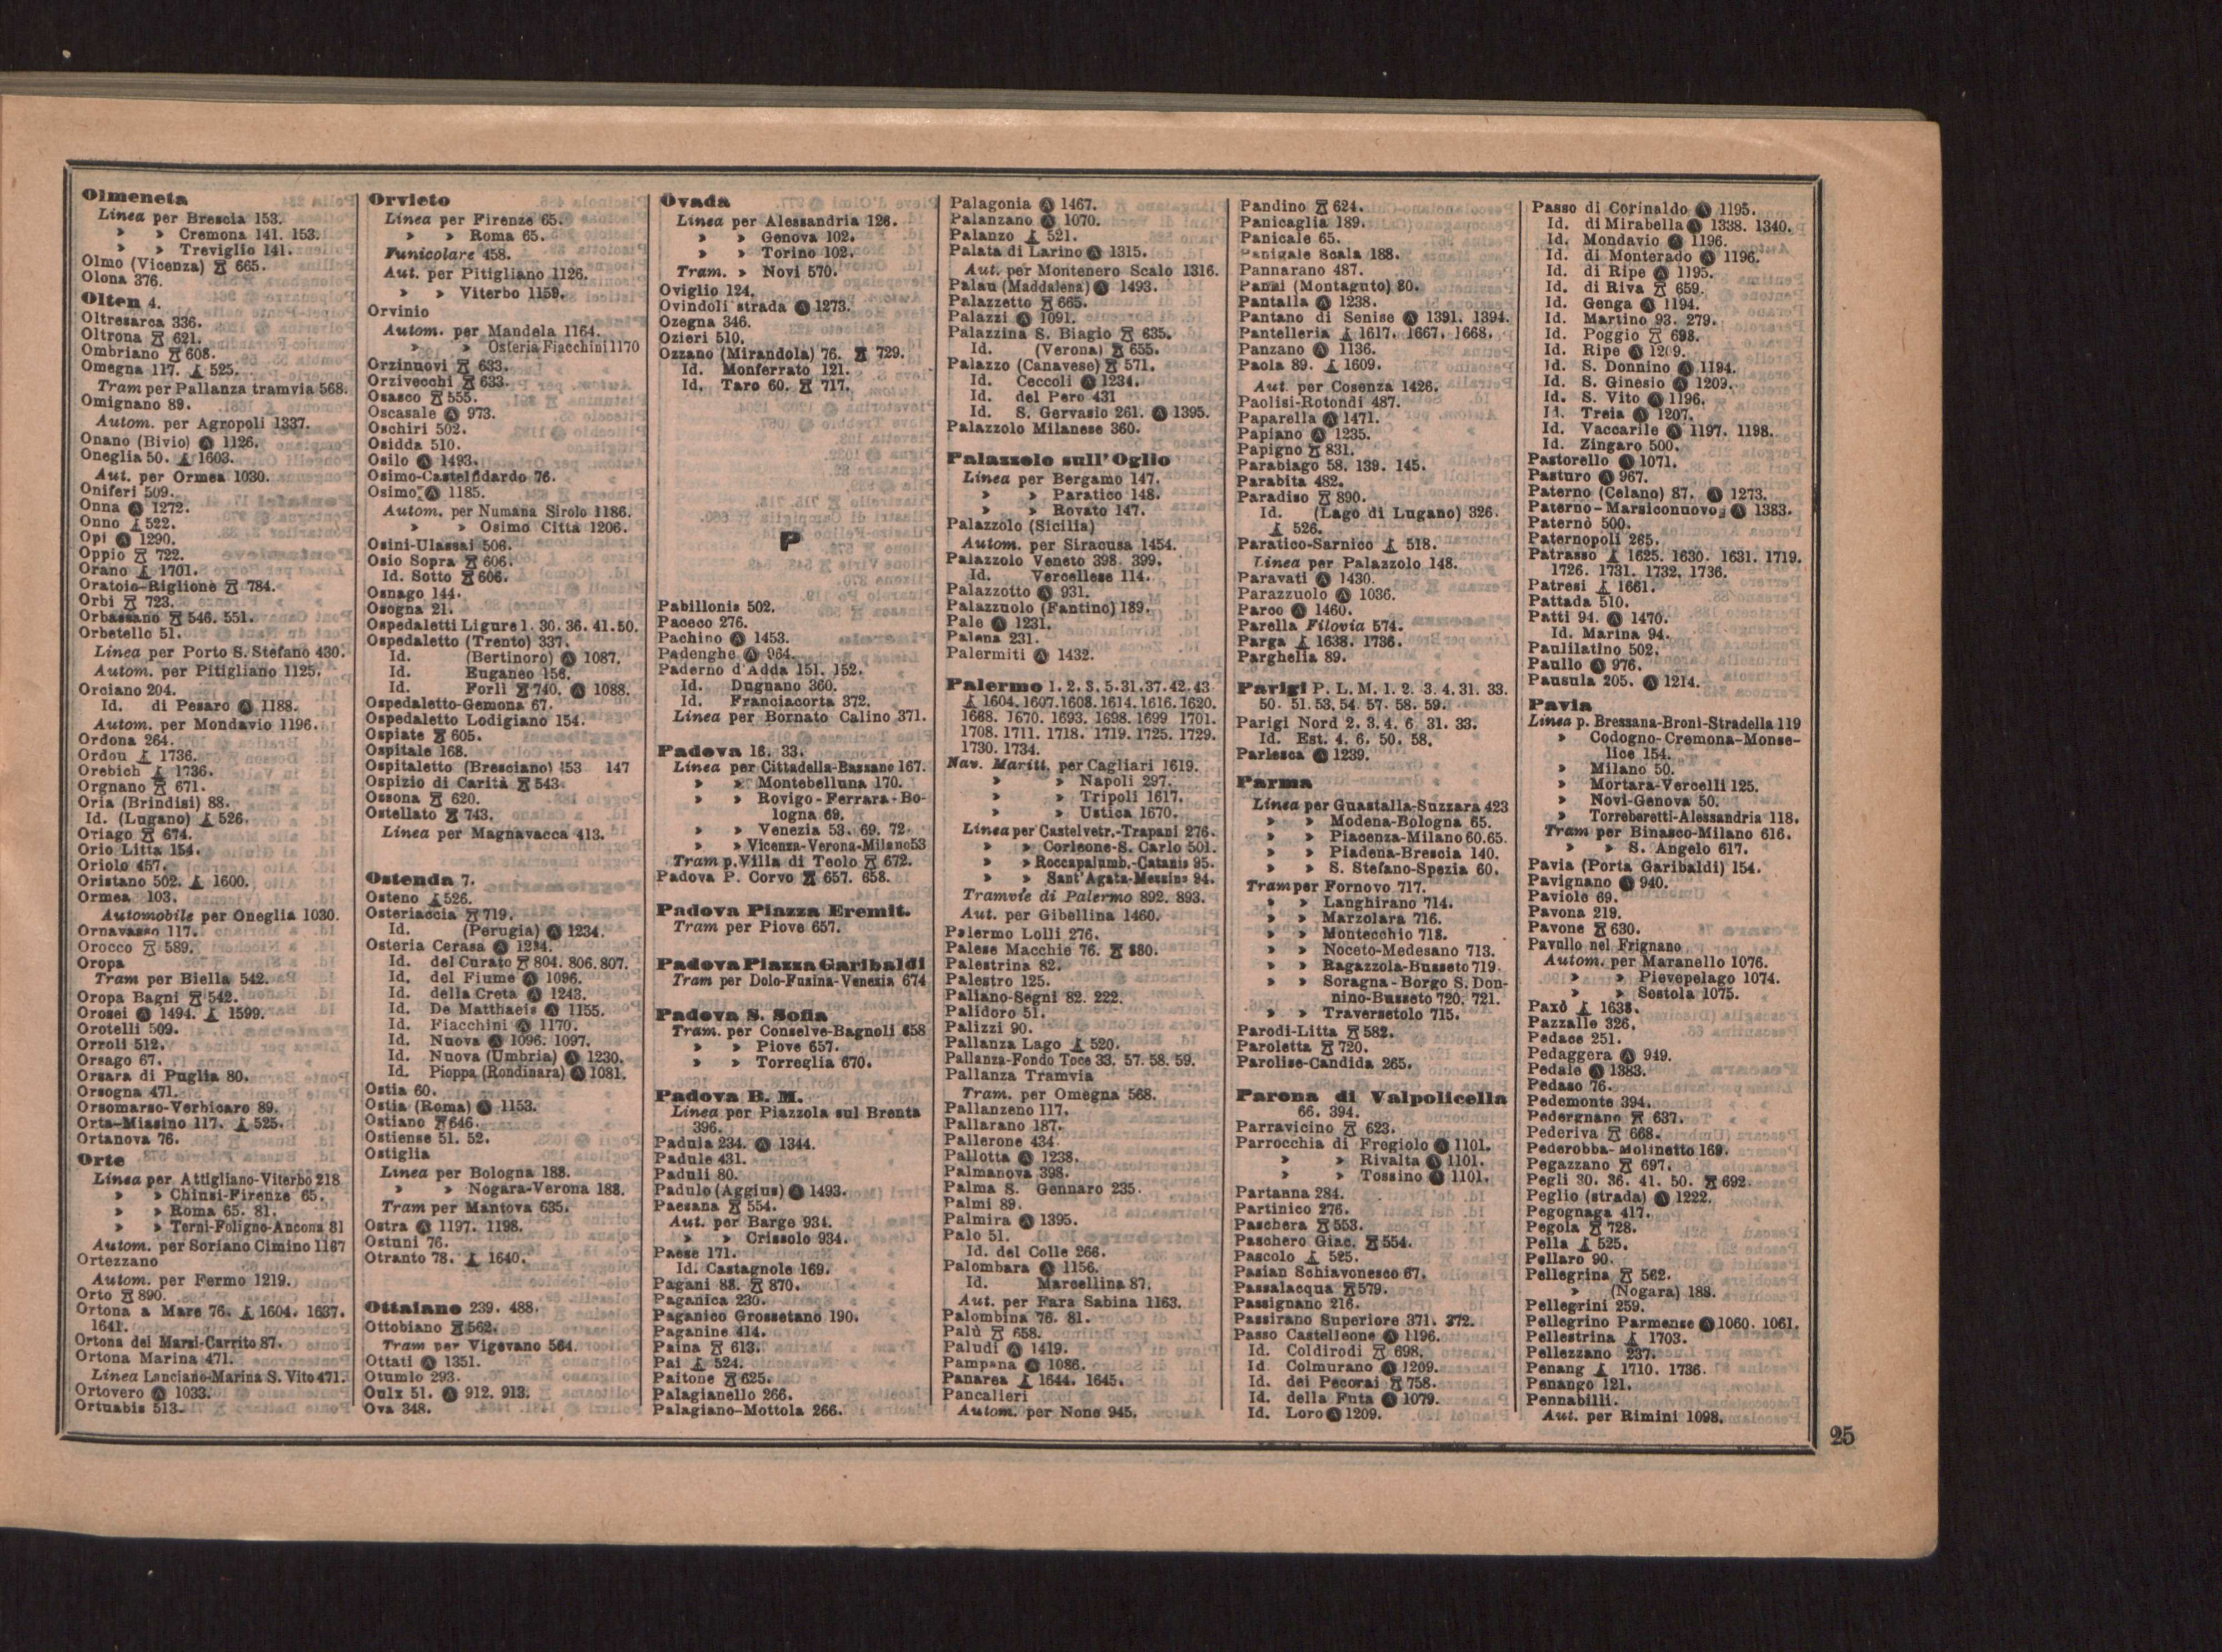 Olmeneta
Linea per Brescia 153.
» » Cremona 141. 153.
» » Treviglio 141.
Olmo (Vicenza) 665.
Olona 376.
Olten 4.
Oltresarca 336.
Oltrona 621.
Ombriano 608.
Omegna 117. 525.
Tram per Pallanza tramvia 568.
Omignano 89.
Autom. per Agropoli 1337.
Onano (Bivio) Ⓐ 1126.
Oneglia 50. 1603.
Aut. per Ormea 1030.
Oniferi 509.
Onna Ⓐ 1272.
Onno 522.
Opi Ⓐ 1290.
Oppio 722.
Orano 1701.
Oratoio-Riglione 784.
Orbi 723.
Orbassano 546. 551.
Orbetello 51.
Linea per Porto S. Stefano 430.
Autom. per Pitigliano 1125.
Orciano 204.
Id. di Pesaro Ⓐ 1188.
Autom. per Mondavio 1196.
Ordona 264.
Ordou 1736.
Orebich 1736.
Orgnano 671.
Oria (Brindisi) 88.
Id. (Lugano) 526.
Oriago 674.
Orio Litta 154.
Oriolo 457.
Oristano 502. 1600.
Ormea 103.
Automobile per Oneglia 1030.
Ornavasso 117.
Orocco 589.
Oropa
Tram per Biella 542.
Oropa Bagni 542.
Orosei Ⓐ 1494. 1599.
Orotelli 509.
Orroli 512.
Orsago 67.
Orsara di Puglia 80.
Orsogna 471.
Orsomarso-Verbicaro 89.
Orta-Miasino 117. 525.
Ortanova 76.
Orte
Linea per Attigliano-Viterbo 218
» » Chiusi-Firenze 65.
» » Roma 65. 81.
» » Terni-Foligno-Ancona 81
Autom. per Soriano Cimino 1167
Ortezzano
Autom. per Fermo 1219.
Orto 890.
Ortona a Mare 76. 1604. 1637.
1641.
Ortona dei Marsi-Carrito 87.
Ortona Marina 471.
Linea Lanciano-Marina S. Vito 471.
Ortovero Ⓐ 1033.
Ortuabis 513.
Orvieto
Linea per Firenze 65.
» » Roma 65.
Funicolare 458.
Aut. per Pitigliano 1126.
» » Viterbo 1159.
Orvinio
Autom. per Mandela 1164.
» » Osteria Fiacchini 1170
Orzinuovi 633.
Orzivecchi 633.
Osasco 555.
Oscasale Ⓐ 973.
Oschiri 502.
Osidda 510.
Osilo Ⓐ 1493.
Osimo-Castelfidardo 76.
Osimo Ⓐ 1185.
Autom. per Numana Sirolo 1186.
» » Osimo Città 1206.
Osini-Ulassai 506.
Osio Sopra 606.
Id. Sotto 606.
Osnago 144.
Osogna 21.
Ospedaletti Ligure 1. 30. 36. 41. 50.
Ospedaletto (Trento) 337.
Id. (Bertinoro) Ⓐ 1087.
Id. Euganeo 156.
Id. Forlì 740. Ⓐ 1088.
Ospedaletto-Gemona 67.
Ospedaletto Lodigiano 154.
Ospiate 605.
Ospitale 168.
Ospitaletto (Bresciano) 153 147
Ospizio di Carità 543.
Ossona 620.
Ostellato 743.
Linea per Magnavacca 413.
Ostenda 7.
Osteno 526.
Osteriaccia 719.
Id. (Perugia) Ⓐ 1234.
Osteria Cerasa Ⓐ 1234.
Id. del Curato 804. 806. 807.
Id. del Fiume Ⓐ 1096.
Id. della Creta Ⓐ 1243.
Id. De Matthaeis Ⓐ 1155.
Id. Fiacchini Ⓐ 1170.
Id. Nuova Ⓐ 1096. 1097.
Id. Nuova (Umbria) Ⓐ 1230.
Id. Pioppa (Rondinara) Ⓐ 1081.
Ostia 60.
Ostia (Roma) Ⓐ 1153.
Ostiano 646.
Ostiense 51. 52.
Ostiglia
Linea per Bologna 188.
» » Nogara-Verona 188.
Tram per Mantova 635.
Ostra Ⓐ 1197. 1198.
Ostuni 76.
Otranto 78. 1640.
Ottaiano 239. 488.
Ottobiano 562.
Tram per Vigevano 564.
Ottati Ⓐ 1351.
Otumlo 293.
Oulx 51. Ⓐ 912. 913.
Ova 348.
Ovada
Linea per Alessandria 126.
» » Genova 102.
» » Torino 102.
Tram. » Novi 570.
Oviglio 124.
Ovindoli strada Ⓐ 1273.
Ozegna 346.
Ozieri 510.
Ozzano (Mirandola) 76. 729.
Id. Monferrato 121.
Id. Taro 60. 717.
P
Pabillonis 502.
Paceco 276.
Pachino Ⓐ 1453.
Padenghe Ⓐ 964.
Paderno d'Adda 151. 152.
Id. Dugnano 360.
Id. Franciacorta 372.
Linea per Bornato Calino 371.
Padova 16. 33.
Linea per Cittadella-Bassano 167.
» » Montebelluna 170.
» » Rovigo-Ferrara-Bo-
logna 69.
» » Venezia 53. 69. 72
» » Vicenza-Verona-Milano 53
Tram p. Villa di Teolo 672.
Padova P. Corvo 657. 658.
Padova Piazza Eremit.
Tram per Piove 657.
Padova Piazza Garibaldi
Tram per Dolo-Fusina-Venezia 674
Padova S. Sofia
Tram. per Conselve-Bagnoli 658
» » Piove 657.
» » Torreglia 670.
Padova B. M.
Linea per Piazzola sul Brenta
396.
Padula 234. Ⓐ 1344.
Padule 431.
Paduli 80.
Padulo (Aggius) Ⓐ 1493.
Paesana 554.
Aut. per Barge 931.
» » Crissolo 934.
Paese 171.
Id. Castagnole 169.
Pagani 88. 870.
Paganica 230.
Paganico Grossetano 190.
Paganine 414.
Paina 613.
Pai 524.
Paitone 625.
Palagianello 266.
Palagiano-Mottola 266.
Palagonia Ⓐ 1467.
Palanzano Ⓐ 1070.
Palanzo 521.
Palata di Larino Ⓐ 1315.
Aut. per Montenero Scalo 1316.
Palau (Maddalena) Ⓐ 1493.
Palazzetto 665.
Palazzi Ⓐ 1091.
Palazzina S. Biagio 635.
Id. (Verona) 655.
Palazzo (Canavese) 571.
Id. Ceccoli Ⓐ 1234.
Id. del Pero 431
Id. S. Gervasio 261. Ⓐ 1395.
Palazzolo Milanese 360.
Palazzolo sull'Oglio
Linea per Bergamo 147.
» » Paratico 148.
» » Rovato 147.
Palazzolo (Sicilia)
Autom. per Siracusa 1454.
Palazzolo Veneto 398. 399.
Id. Vercellese 114.
Palazzotto Ⓐ 931.
Palazzuolo (Fantino) 189.
Pale Ⓐ 1231.
Palena 231.
Palermiti Ⓐ 1432.
Palermo 1. 2. 3. 5. 31. 37. 42. 43
1604. 1607. 1608. 1614. 1616. 1620.
1668. 1670. 1693. 1698. 1699 1701.
1708. 1711. 1718. 1719. 1725. 1729.
1730. 1734.
Nav. Maritt. per Cagliari 1619.
» » Napoli 297.
» » Tripoli 1617.
» » Ustica 1670.
Linea per Castelvetr.-Trapani 276.
» » Corleone-S. Carlo 501.
» » Roccapalumb.-Catania 95.
» » Sant'Agata-Messina 94.
Tramvie di Palermo 892. 893.
Aut. per Gibellina 1460.
Palermo Lolli 276.
Palese Macchie 76. 880.
Palestrina 82.
Palestro 125.
Paliano-Segni 82. 222.
Palidoro 51.
Palizzi 90.
Pallanza Lago 520.
Pallanza-Fondo Toce 33. 57. 58. 59.
Pallanza Tramvia
Tram. per Omegna 568.
Pallanzeno 117.
Pallarano 187.
Pallerone 434.
Pallotta Ⓐ 1238.
Palmanova 398.
Palma S. Gennaro 235.
Palmi 89.
Palmira Ⓐ 1395.
Palo 51.
Id. del Colle 266.
Palombara Ⓐ 1156.
Id. Marcellina 87.
Aut. per Fara Sabina 1163.
Palombina 76. 81.
Palù 658.
Paludi Ⓐ 1419.
Pampana Ⓐ 1086.
Panarea 1644. 1645.
Pancalieri
Autom. per None 945.
Pandino 624.
Panicaglia 189.
Panicale 65.
Panigale Scala 188.
Pannarano 487.
Panni (Montaguto) 80.
Pantalla Ⓐ 1238.
Pantano di Senise Ⓐ 1391. 1394.
Pantelleria 1617. 1667. 1668.
Panzano Ⓐ 1136.
Paola 89. 1609.
Aut. per Cosenza 1426.
Paolisi-Rotondi 487.
Paparella Ⓐ 1471.
Papiano Ⓐ 1235.
Papigno 831.
Parabiago 58. 139. 145.
Parabita 482.
Paradiso 890.
Id. (Lago di Lugano) 326.
526.
Paratico-Sarnico 518.
Linea per Palazzolo 148.
Paravati Ⓐ 1430.
Parazzuolo Ⓐ 1036.
Parco Ⓐ 1460.
Parella Filovia 574.
Parga 1638. 1736.
Parghelia 89.
Parigi P. L. M. 1. 2. 3. 4. 31. 33.
50. 51. 53. 54. 57. 58. 59.
Parigi Nord 2. 3. 4. 6. 31. 33.
Id. Est. 4. 6. 50. 58.
Parlesca Ⓐ 1239.
Parma
Linea per Guastalla-Suzzara 423
» » Modena-Bologna 65.
» » Piacenza-Milano 60. 65.
» » Piadena-Brescia 140.
» » S. Stefano-Spezia 60.
Tram per Fornovo 717.
» » Langhirano 714.
» » Marzolara 716.
» » Montecchio 718.
» » Noceto-Medesano 713.
» » Ragazzola-Busseto 719.
» » Soragna-Borgo S. Don-
nino-Busseto 720. 721.
» » Traversetolo 715.
Parodi-Litta 582.
Paroletta 720.
Parolise-Candida 265.
Parona di Valpolicella
66. 394.
Parravicino 623.
Parrocchia di Fregiolo Ⓐ 1101.
» » Rivalta Ⓐ 1101.
» » Tossino Ⓐ 1101.
Partanna 284.
Partinico 276.
Paschera 553.
Paschero Giac. 554.
Pascolo 525.
Pasian Schiavonesco 67.
Passalacqua 579.
Passignano 216.
Passirano Superiore 371. 372.
Passo Castelleone Ⓐ 1196.
Id. Coldirodi 698.
Id. Colmurano Ⓐ 1209.
Id. dei Pecorai 758.
Id. della Futa Ⓐ 1079.
Id. Loro Ⓐ 1209.
Passo di Corinaldo Ⓐ 1195.
Id. di Mirabella Ⓐ 1338. 1340.
Id. Mondavio Ⓐ 1196.
Id. di Monterado Ⓐ 1196.
Id. di Ripe Ⓐ 1195.
Id. di Riva 659.
Id. Genga Ⓐ 1194.
Id. Martino 93. 279.
Id. Poggio 698.
Id. Ripe Ⓐ 1209.
Id. S. Donnino Ⓐ 1194.
Id. S. Ginesio Ⓐ 1209.
Id. S. Vito Ⓐ 1196.
Id. Treia Ⓐ 1207.
Id. Vaccarile Ⓐ 1197. 1198.
Id. Zingaro 500.
Pastorello Ⓐ 1071.
Pasturo Ⓐ 967.
Paterno (Celano) 87. Ⓐ 1273.
Paterno-Marsiconuovo Ⓐ 1383.
Paternò 500.
Paternopoli 265.
Patrasso 1625. 1630. 1631. 1719.
1726. 1731. 1732. 1736.
Patresi 1661.
Pattada 510.
Patti 94. Ⓐ 1470.
Id. Marina 94.
Paulilatino 502.
Paullo Ⓐ 976.
Pausula 205. Ⓐ 1214.
Pavia
Linea p. Bressana-Broni-Stradella 119
» Codogno-Cremona-Monse-
lice 154.
» Milano 50.
» Mortara-Vercelli 125.
» Novi-Genova 50.
» Torreberetti-Alessandria 118.
Tram per Binasco-Milano 616.
» » S. Angelo 617.
Pavia (Porta Garibaldi) 154.
Pavignano Ⓐ 940.
Paviole 69.
Pavona 219.
Pavone 630.
Pavullo nel Frignano
Autom. per Maranello 1076.
» » Pievepelago 1074.
» » Sestola 1075.
Paxò 1638.
Pazzallo 326.
Pedace 251.
Pedaggera Ⓐ 949.
Pedale Ⓐ 1383.
Pedaso 76.
Pedemonte 394.
Pedergnano 637.
Pederiva 668.
Pederobba-Molinetto 169.
Pegazzano 697.
Pegli 30. 36. 41. 50. 692.
Peglio (strada) Ⓐ 1222.
Pegognaga 417.
Pegola 728.
Pella 525.
Pellaro 90.
Pellegrina 562.
» (Nogara) 188.
Pellegrini 259.
Pellegrino Parmense Ⓐ 1060. 1061.
Pellestrina 1703.
Pellezzano 237.
Penang 1710. 1736.
Penango 121.
Pennabilli.
Aut. per Rimini 1098.
25